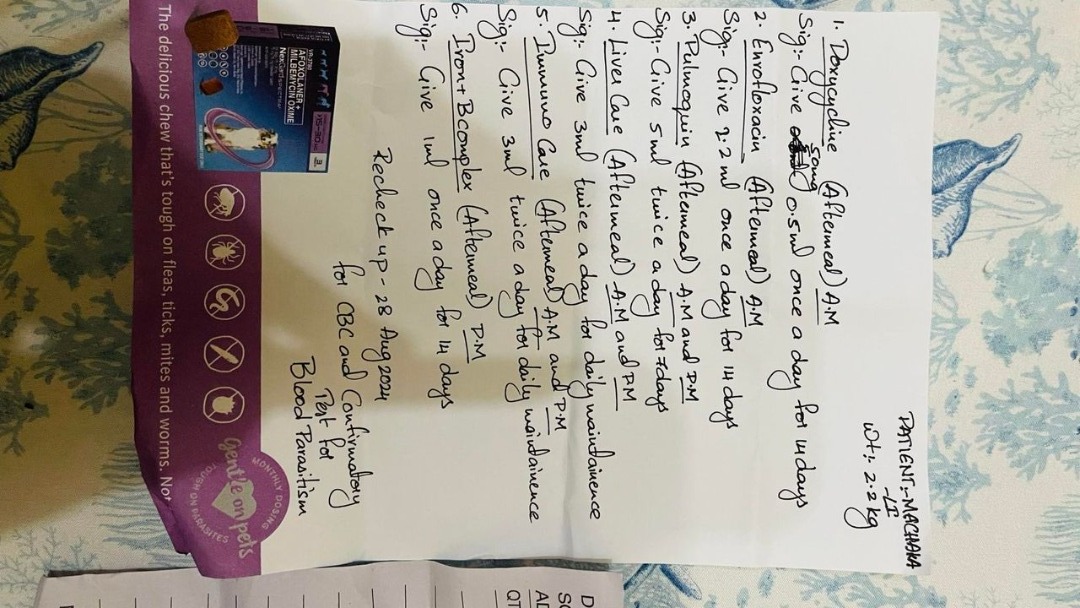 PATIENT:- MACHAKA
-LI
wt:- 2.2 kg
1. Doxycycline (Aftermeal) A.M
50mg
Sig:- Give 0.5ml once a day for 14 days
2. Enrofloxacin (Aftermeal) A.M
Sig:- Give 2.2 ml once a day for 14 days
3. Pulmoquin (Aftermeal) A.M and P.M
Sig:- Give 5 ml twice a day for 7days
4. Liver Care (Aftermeal) A.M and P.M
Sig:- Give 3ml twice a day for daily maintainence
5. Immuno Care (Aftermeal) A.M and P.M
Sig:- Give 3ml twice a day for daily maintainence
6. Iron + Bcomplex (Aftermeal) P.M
Sig:- Give 1ml once a day for 14 days
Recheck up - 28 Aug 2024
for CBC and Confirmatory
Test for
Blood Parasitism
AFOXOLANER +
MILBEMYCIN OXIME
NexGard SPECTRA
MONTHLY DOSING
Gentle on pets
TOUGH ON PARASITES
The delicious chew that's tough on fleas, ticks, mites and worms. Not
D
SC
AD
QT